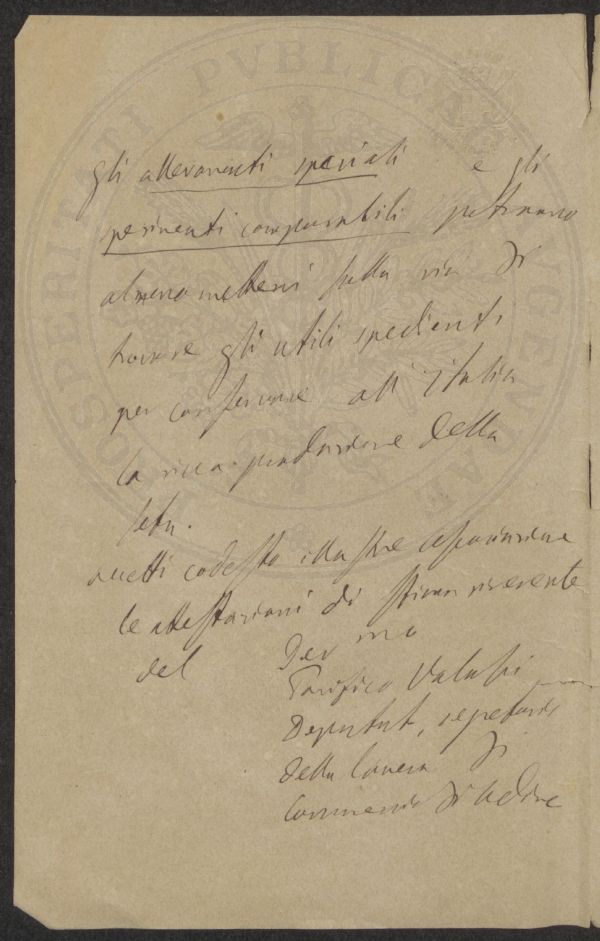 PROSPERITATI PVBLICAE AVGENDAE
gli allevamenti speciali e gli
sperimenti comparabili potranno
almeno mettersi sulla via di
trovare gli utili spedienti
per conservare all'Italia
la ricca produzione della
seta.
Accetti codesta illustre associazione
le attestazioni di stima riverente
del Dev mo
Pacifico Valussi
Deputato, segretario
della Camera di
Commercio di Udine